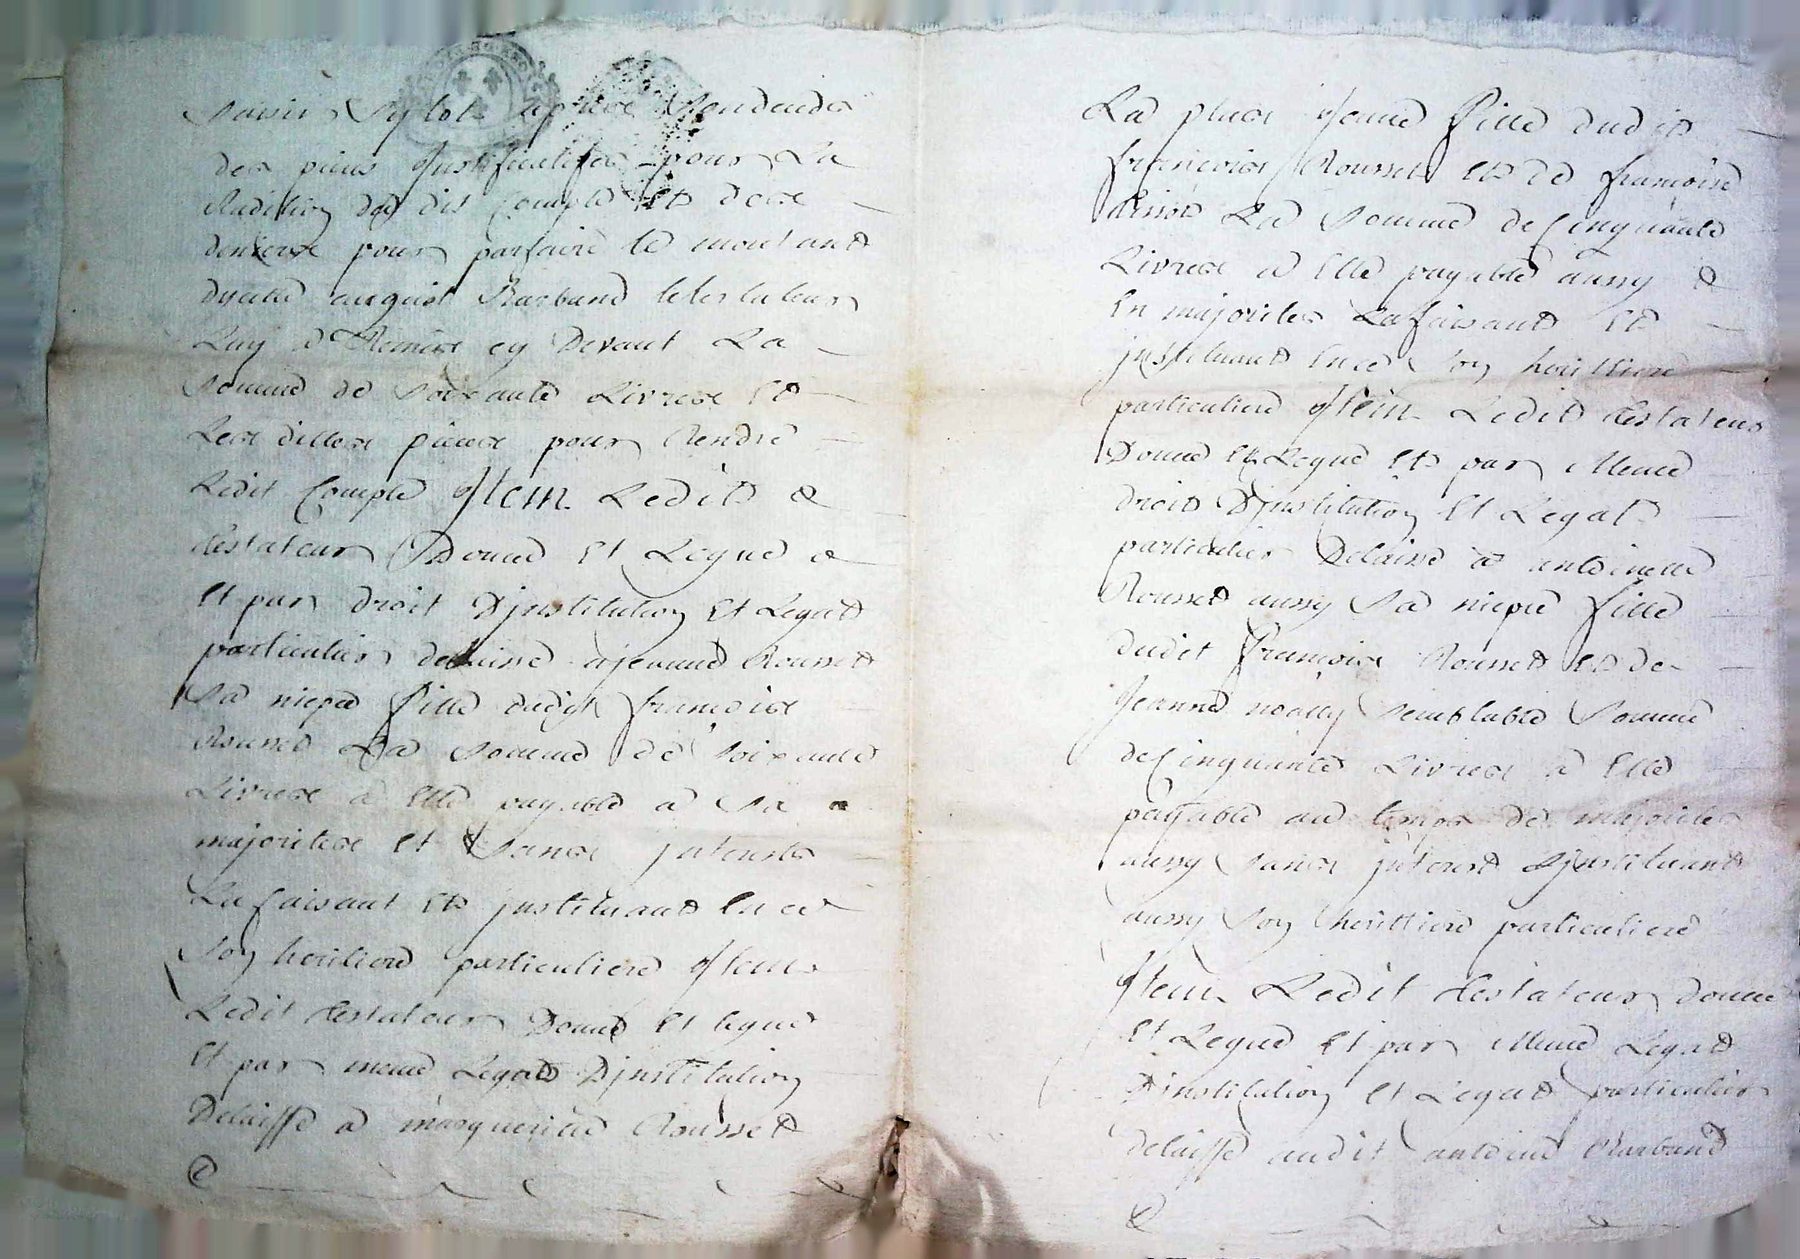 des pieces justificatifes pour La
Reddition des dis Compte Et Des
deniers pour parfaire le montant
Barband le testateur
Luy a Remis cy Devant La
Somme de Soixante Livres Et
Les dittes pieces pour Rendre
Ledit Compte Item Ledit
testateur Donne Et Legue
Et par droit Djnstitution Et Legat
particulier delaisse a jeanne Rousset
Sa niepce fille dudit françois
Rousset La Somme de soixante
Livres a Elle payable a Sa
majorites Et Sans jnterests
La faisant Et jnstituant En ce
Son heritiere particuliere Item
Ledit testateur Donne Et legue
Et par meme Legat Djnstitution
Delaisse a marguerite Rousset
La plus Jeune fille dudit
françois Rousset Et de françoise
La Somme de Cinquante
Livres a Elle payable aussy
En majorites La faisant Et
jnstituant En ce Son heritiere
particuliere Item Ledit testateur
Donne Et Legue Et par Meme
droit Djnstitution Et Legat
particulier Delaisse a antoinette
Rousset aussy Sa niepce fille
dudit françois Rousset Et de
Jeanne noally Semblable Somme
de Cinquante Livres a Elle
payable au temps de majorites
aussy Sans jnterest Ljnstituant
aussy Son heritiere particuliere
Item Ledit testateur donne
Et Legue Et par Meme Legat
Djnstitution Et Legat particulier
delaisse audit antoine Barband